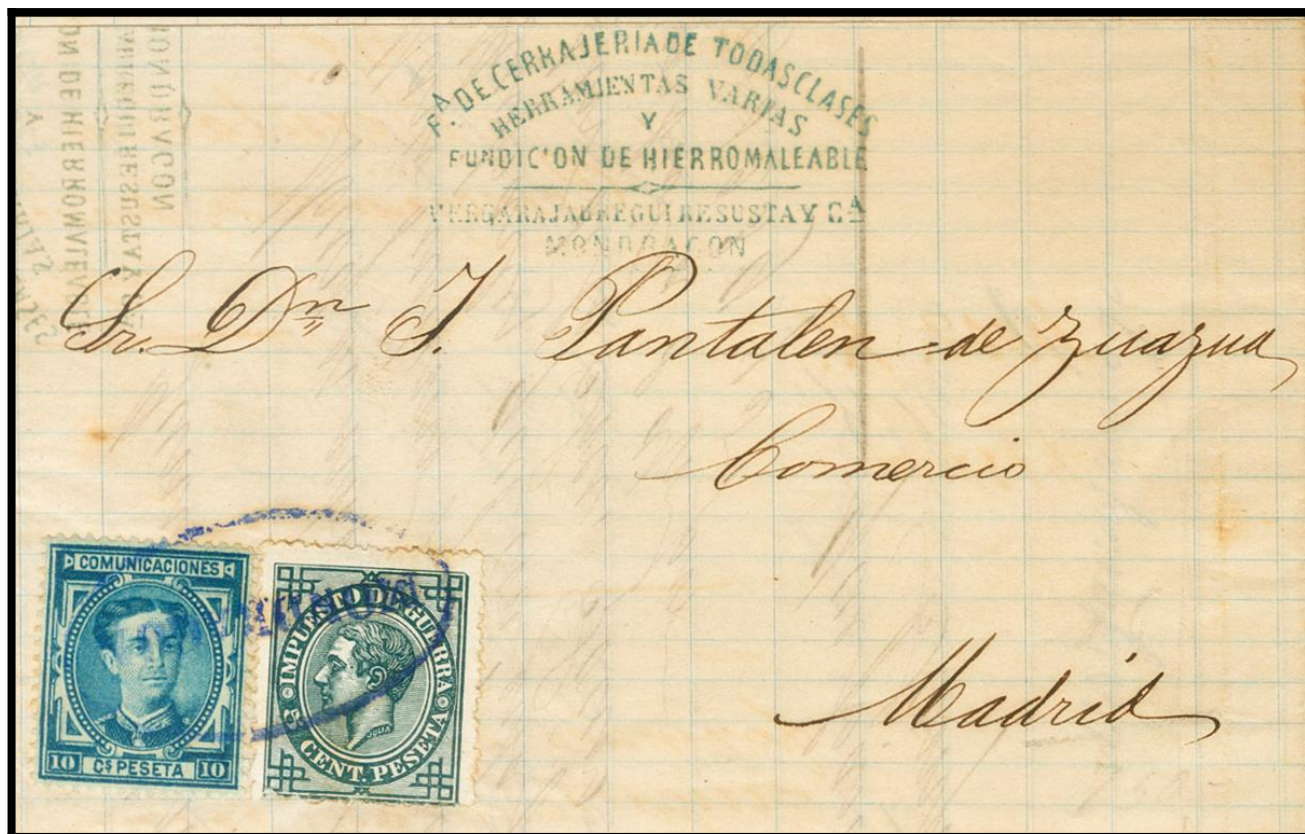 F.A DE CERRAJERIA DE TODAS CLASES
HERRAMIENTAS VARIAS
Y
FUNDICION DE HIERRO MALEABLE
VERGARAJAUREGUI RESUSTA Y CA
MONDRAGON
Sr. Dn J. Pantalen de Zuazua
Comercio
Madrid
COMUNICACIONES
10 Cs PESETA 10
IMPUESTO DE GUERRA
5 CENT. PESETA
JULIA
MONDRAGON